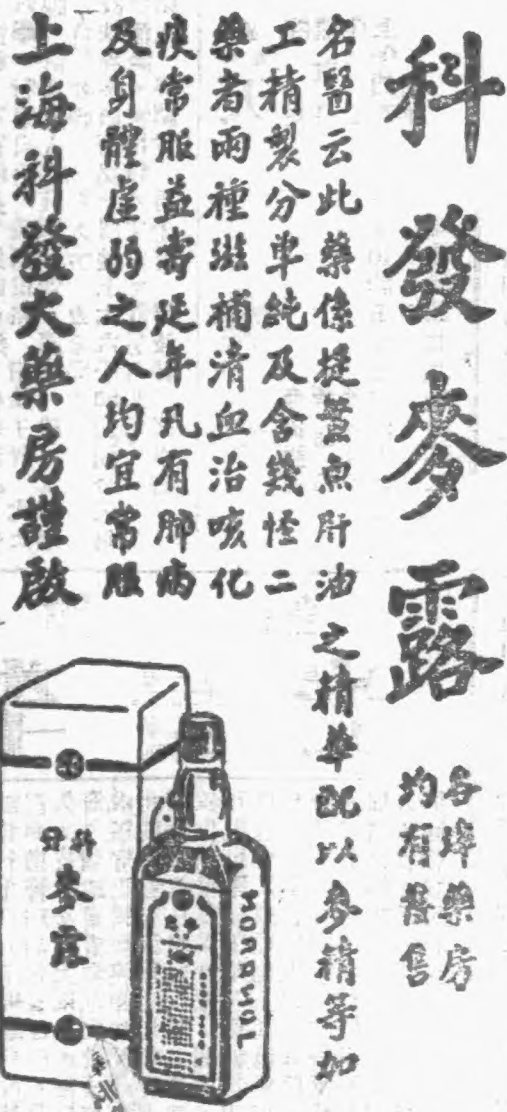 科發麥露
各埠藥房
均有售
名醫云此藥係提鰵魚肝油之精華配以麥精等加
工精製分單純及含幾怪二
藥者兩種滋補清血治咳化
痰常服益壽延年凡有肺病
及身體虛弱之人均宜常服
上海科發大藥房謹啟
科發
麥露
MORRHUOL